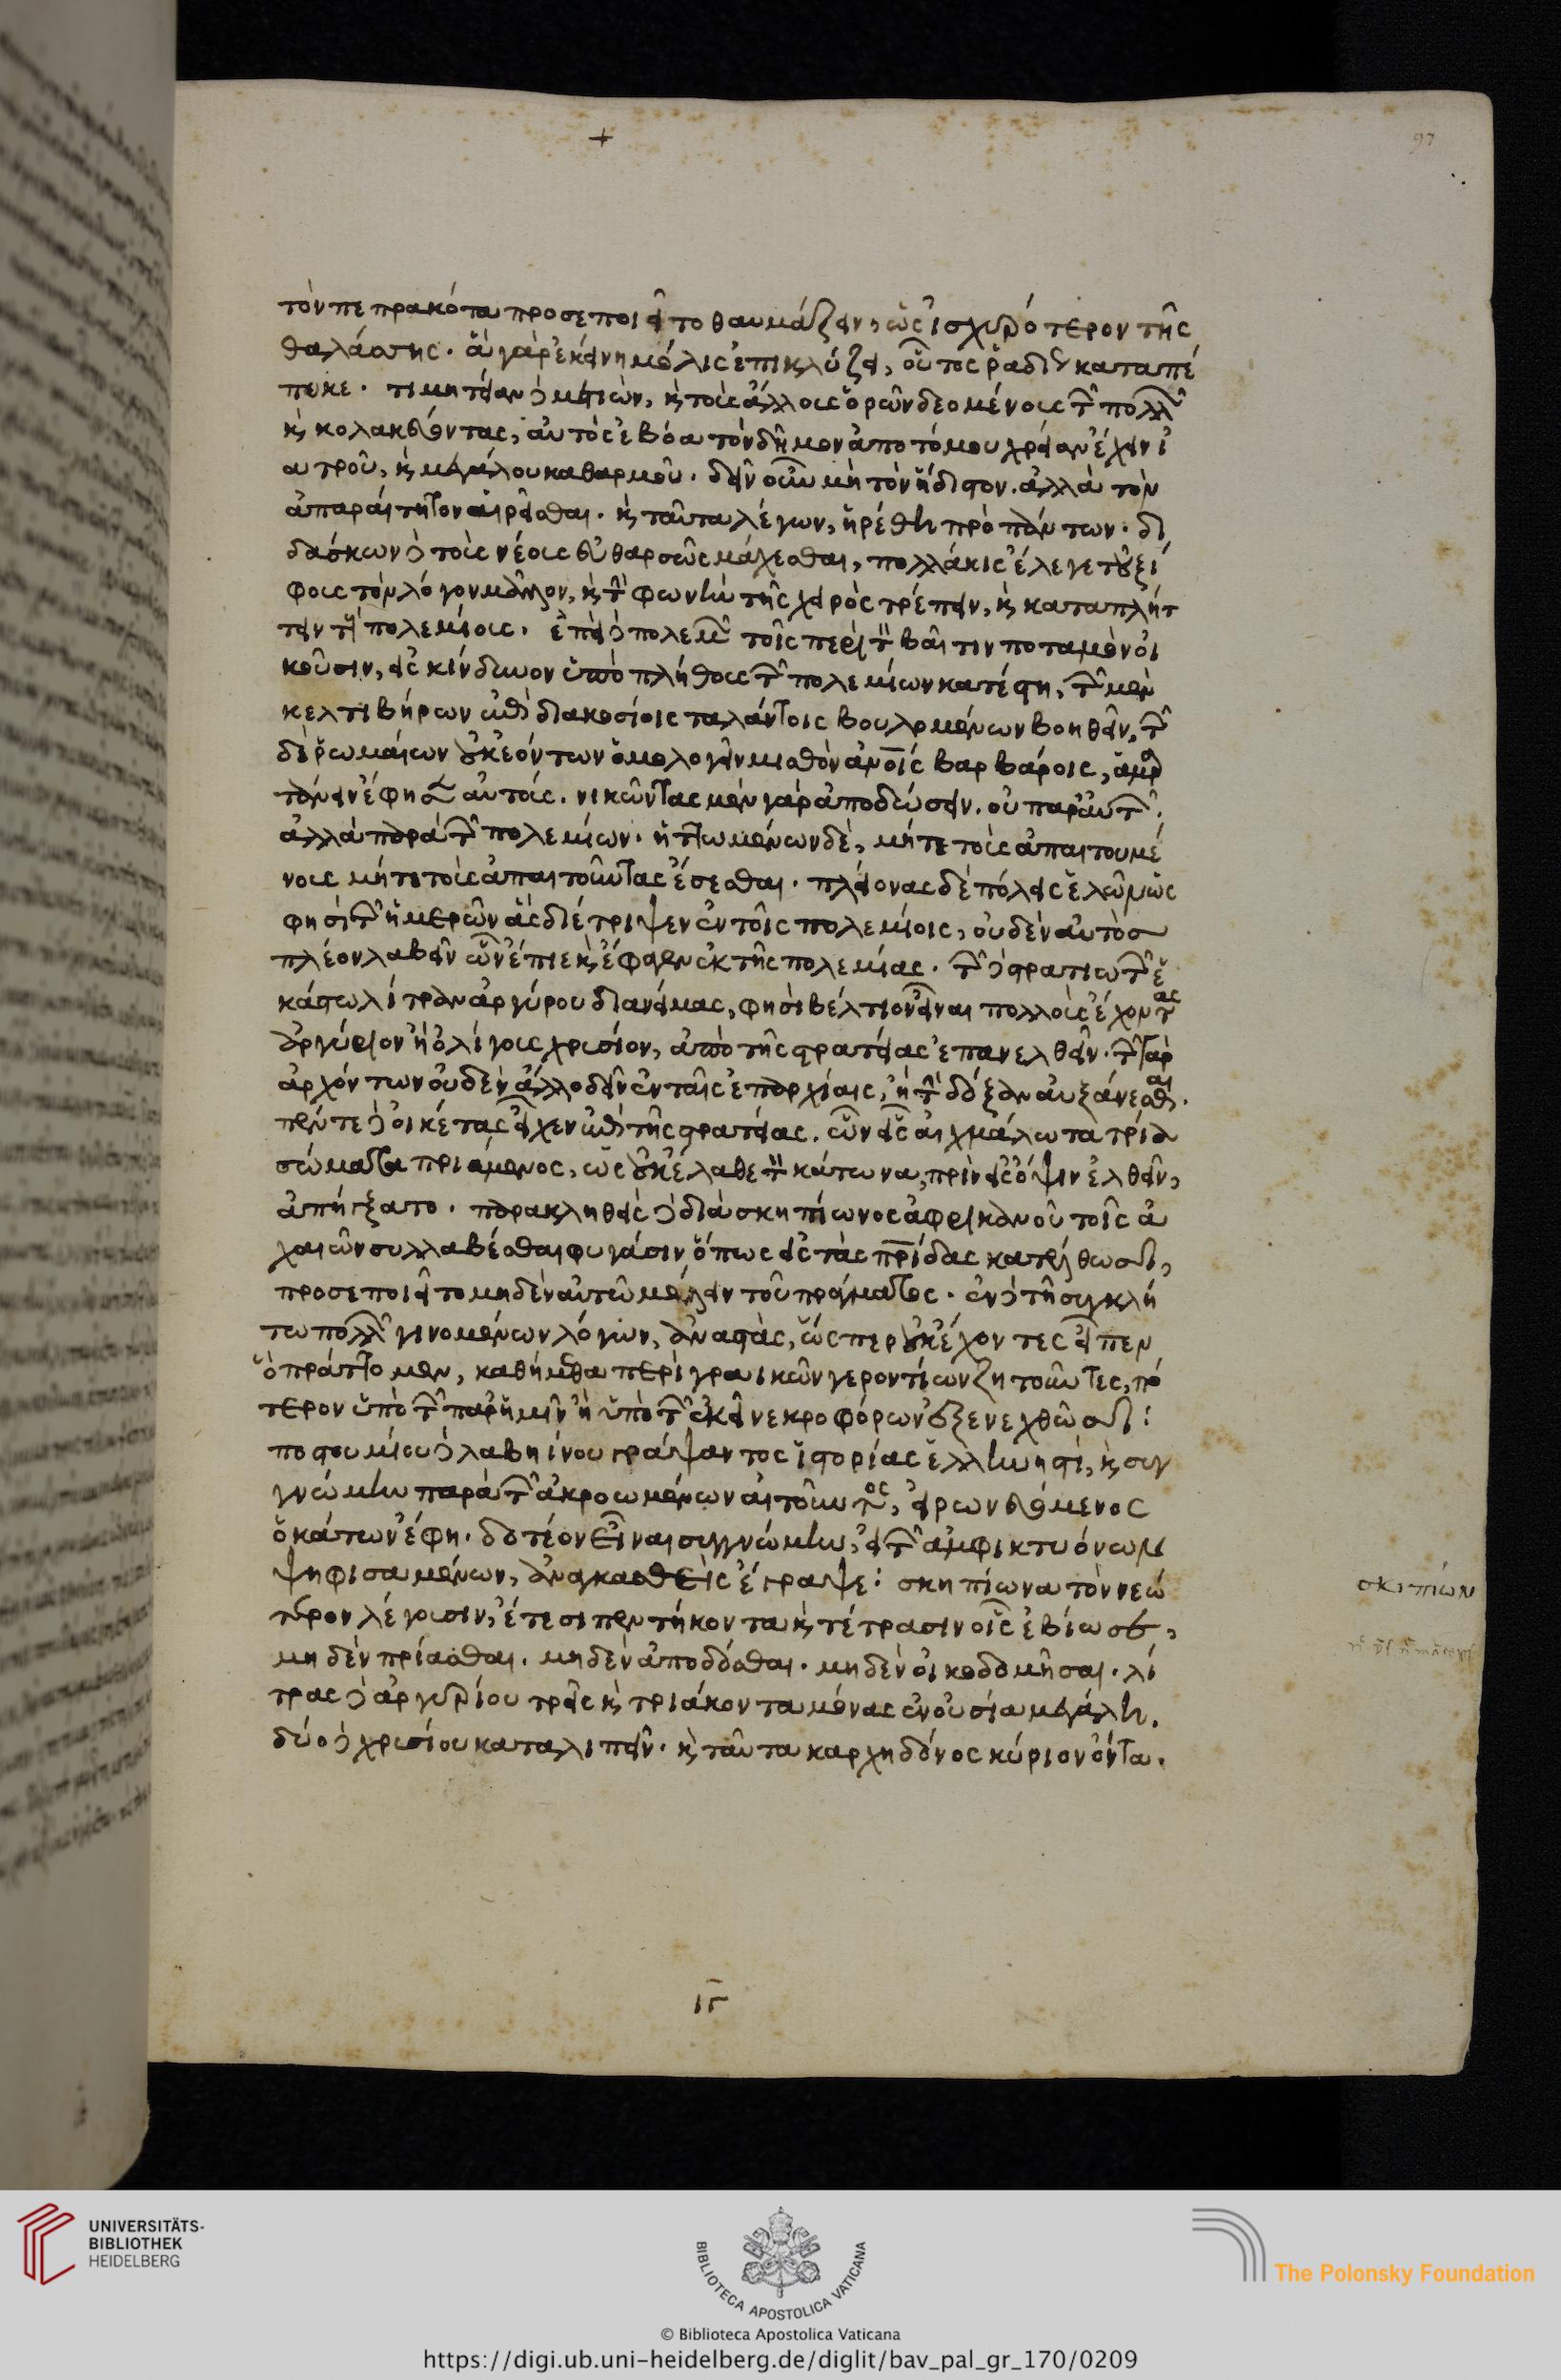 +
97
τὸν πεπρακότα προσεποιεῖτο θαυμάζειν, ὡς ἰσχυρότερον τῆς
θαλάσσης. ἃ γὰρ ἐκείνη μόλις ἐπικλύζει, οὗτος ῥαδίως καταπέ
πωκε. τιμητείαν δὲ μετιὼν, καὶ τοὺς ἄλλους ὁρῶν δεομένους τῶν πολλῶν
καὶ κολακεύοντας, αὐτὸς ἐβόα τὸν δῆμον ἀποτόμου χρείαν ἔχειν ἰ
ατροῦ, καὶ μεγάλου καθαρμοῦ. δεῖν οὖν μὴ τὸν ἥδιστον. ἀλλὰ τὸν
ἀπαραίτητον αἱρεῖσθαι. καὶ ταῦτα λέγων, ᾑρέθη πρὸ πάντων. δι
δάσκων δὲ τοὺς νέους εὐθαρσῶς μάχεσθαι, πολλάκις ἔλεγε τοῦ ξί
φους τὸν λόγον μᾶλλον, καὶ τὴν φωνὴν τῆς χειρὸς τρέπειν, καὶ καταπλήτ
τειν τοὺς πολεμίους. ἐπεὶ δὲ πολεμῶν τοῖς περὶ τὸν βαῖτιν ποταμὸν οἰ
κοῦσιν, εἰς κίνδυνον ὑπὸ πλήθους τῶν πολεμίων κατέστη, τῶν μὲν
κελτιβήρων ἐπὶ διακοσίοις ταλάντοις βουλομένων βοηθεῖν, τῶν
δὲ ῥωμαίων οὐκ ἐόντων ὁμολογεῖν μισθὸν ἀνοῖς βαρβάροις, ἁμαρ
τάνειν ἔφη αὐτοὺς. νικῶντας μὲν γὰρ ἀποδώσειν. οὐ παρ' αὑτῶν.
ἀλλὰ παρὰ τῶν πολεμίων. ἡττωμένων δὲ, μήτε τοὺς ἀπαιτουμέ
νους μήτε τοὺς ἀπαιτοῦντας ἔσεσθαι. πλείονας δὲ πόλεις ἑλὼν ὡς
φησὶ τῶν ἡμερῶν ἃς διέτριψεν ἐν τοῖς πολεμίοις, οὐδὲν αὐτὸς
πλέον λαβεῖν ὧν ἔπιε καὶ ἔφαγεν ἐκ τῆς πολεμίας. τῶν δὲ στρατιωτῶν ἑ
κάστῳ λίτραν ἀργύρου διανείμας, φησὶ βέλτιον εἶναι πολλοὺς ἔχοντας
ἀργύριον ἢ ὀλίγους χρυσίον, ἀπὸ τῆς στρατείας ἐπανελθεῖν. τῶν γὰρ
ἀρχόντων οὐδὲν ἄλλο δεῖν ἐν ταῖς ἐπαρχίαις, ἢ τὴν δόξαν αὐξάνεσθαι.
πέντε δὲ οἰκέτας εἶχεν ἐπὶ τῆς στρατείας. ὧν εἷς αἰχμάλωτα τρία
σώματα πριάμενος, ὡς οὐκ ἔλαθε τὸν κάτωνα, πρὶν εἰς ὄψιν ἐλθεῖν,
ἀπήγξατο. παρακληθεὶς δὲ διὰ σκηπίωνος ἀφρικανοῦ τοῖς ἀ
χαιῶν συλλαβέσθαι φυγάσιν ὅπως εἰς τὰς πρίδας κατέλθωσι,
προσεποιεῖτο μηδὲν αὐτῶ μέλειν τοῦ πράγματος. ἐν δὲ τῆ συγκλή
τω πολλῶν γινομένων λόγων, ἀναστὰς, ὥσπερ οὐκ ἔχοντες εἶπεν
ὃ πράττομεν, καθήμεθα περὶ γραικῶν γεροντίων ζητοῦντες, πό
τερον ὑπὸ τῶν παρ' ἡμῖν ἢ ὑπὸ τῶν ἐκεῖ νεκροφόρων ἐξενεχθῶσι:
ποστουμίου δὲ λαβηίνου γράψαντος ἱστορίας ἑλληνηστὶ, καὶ συγ
γνώμην παρὰ τῶν ἀκροωμένων αἰτοῦντος, εἰρωνευόμενος
ὁ κάτων ἔφη. δοτέον εἶναι συγγνώμην, εἰ τῶν ἀμφικτυόνων
ψηφισαμένων, ἀναγκασθεὶς ἔγραψε: σκηπίωνα τὸν νεώ
τερον λέγουσιν, ἔτεσι πεντήκοντα καὶ τέτρασιν οἷς ἐβίωσε,
μηδὲν πρίασθαι. μηδὲν ἀποδόσθαι. μηδὲν οἰκοδομῆσαι. λί
τρας δὲ ἀργυρίου τρεῖς καὶ τριάκοντα μόνας ἐν οὐσία μεγάλη.
δύο δὲ χρυσίου καταλιπεῖν. καὶ ταῦτα καρχηδόνος κύριον ὄντα.
σκιπίων
ιγ
UNIVERSITÄTS-
BIBLIOTHEK
HEIDELBERG
BIBLIOTECA APOSTOLICA VATICANA
The Polonsky Foundation
© Biblioteca Apostolica Vaticana
https://digi.ub.uni-heidelberg.de/diglit/bav_pal_gr_170/0209